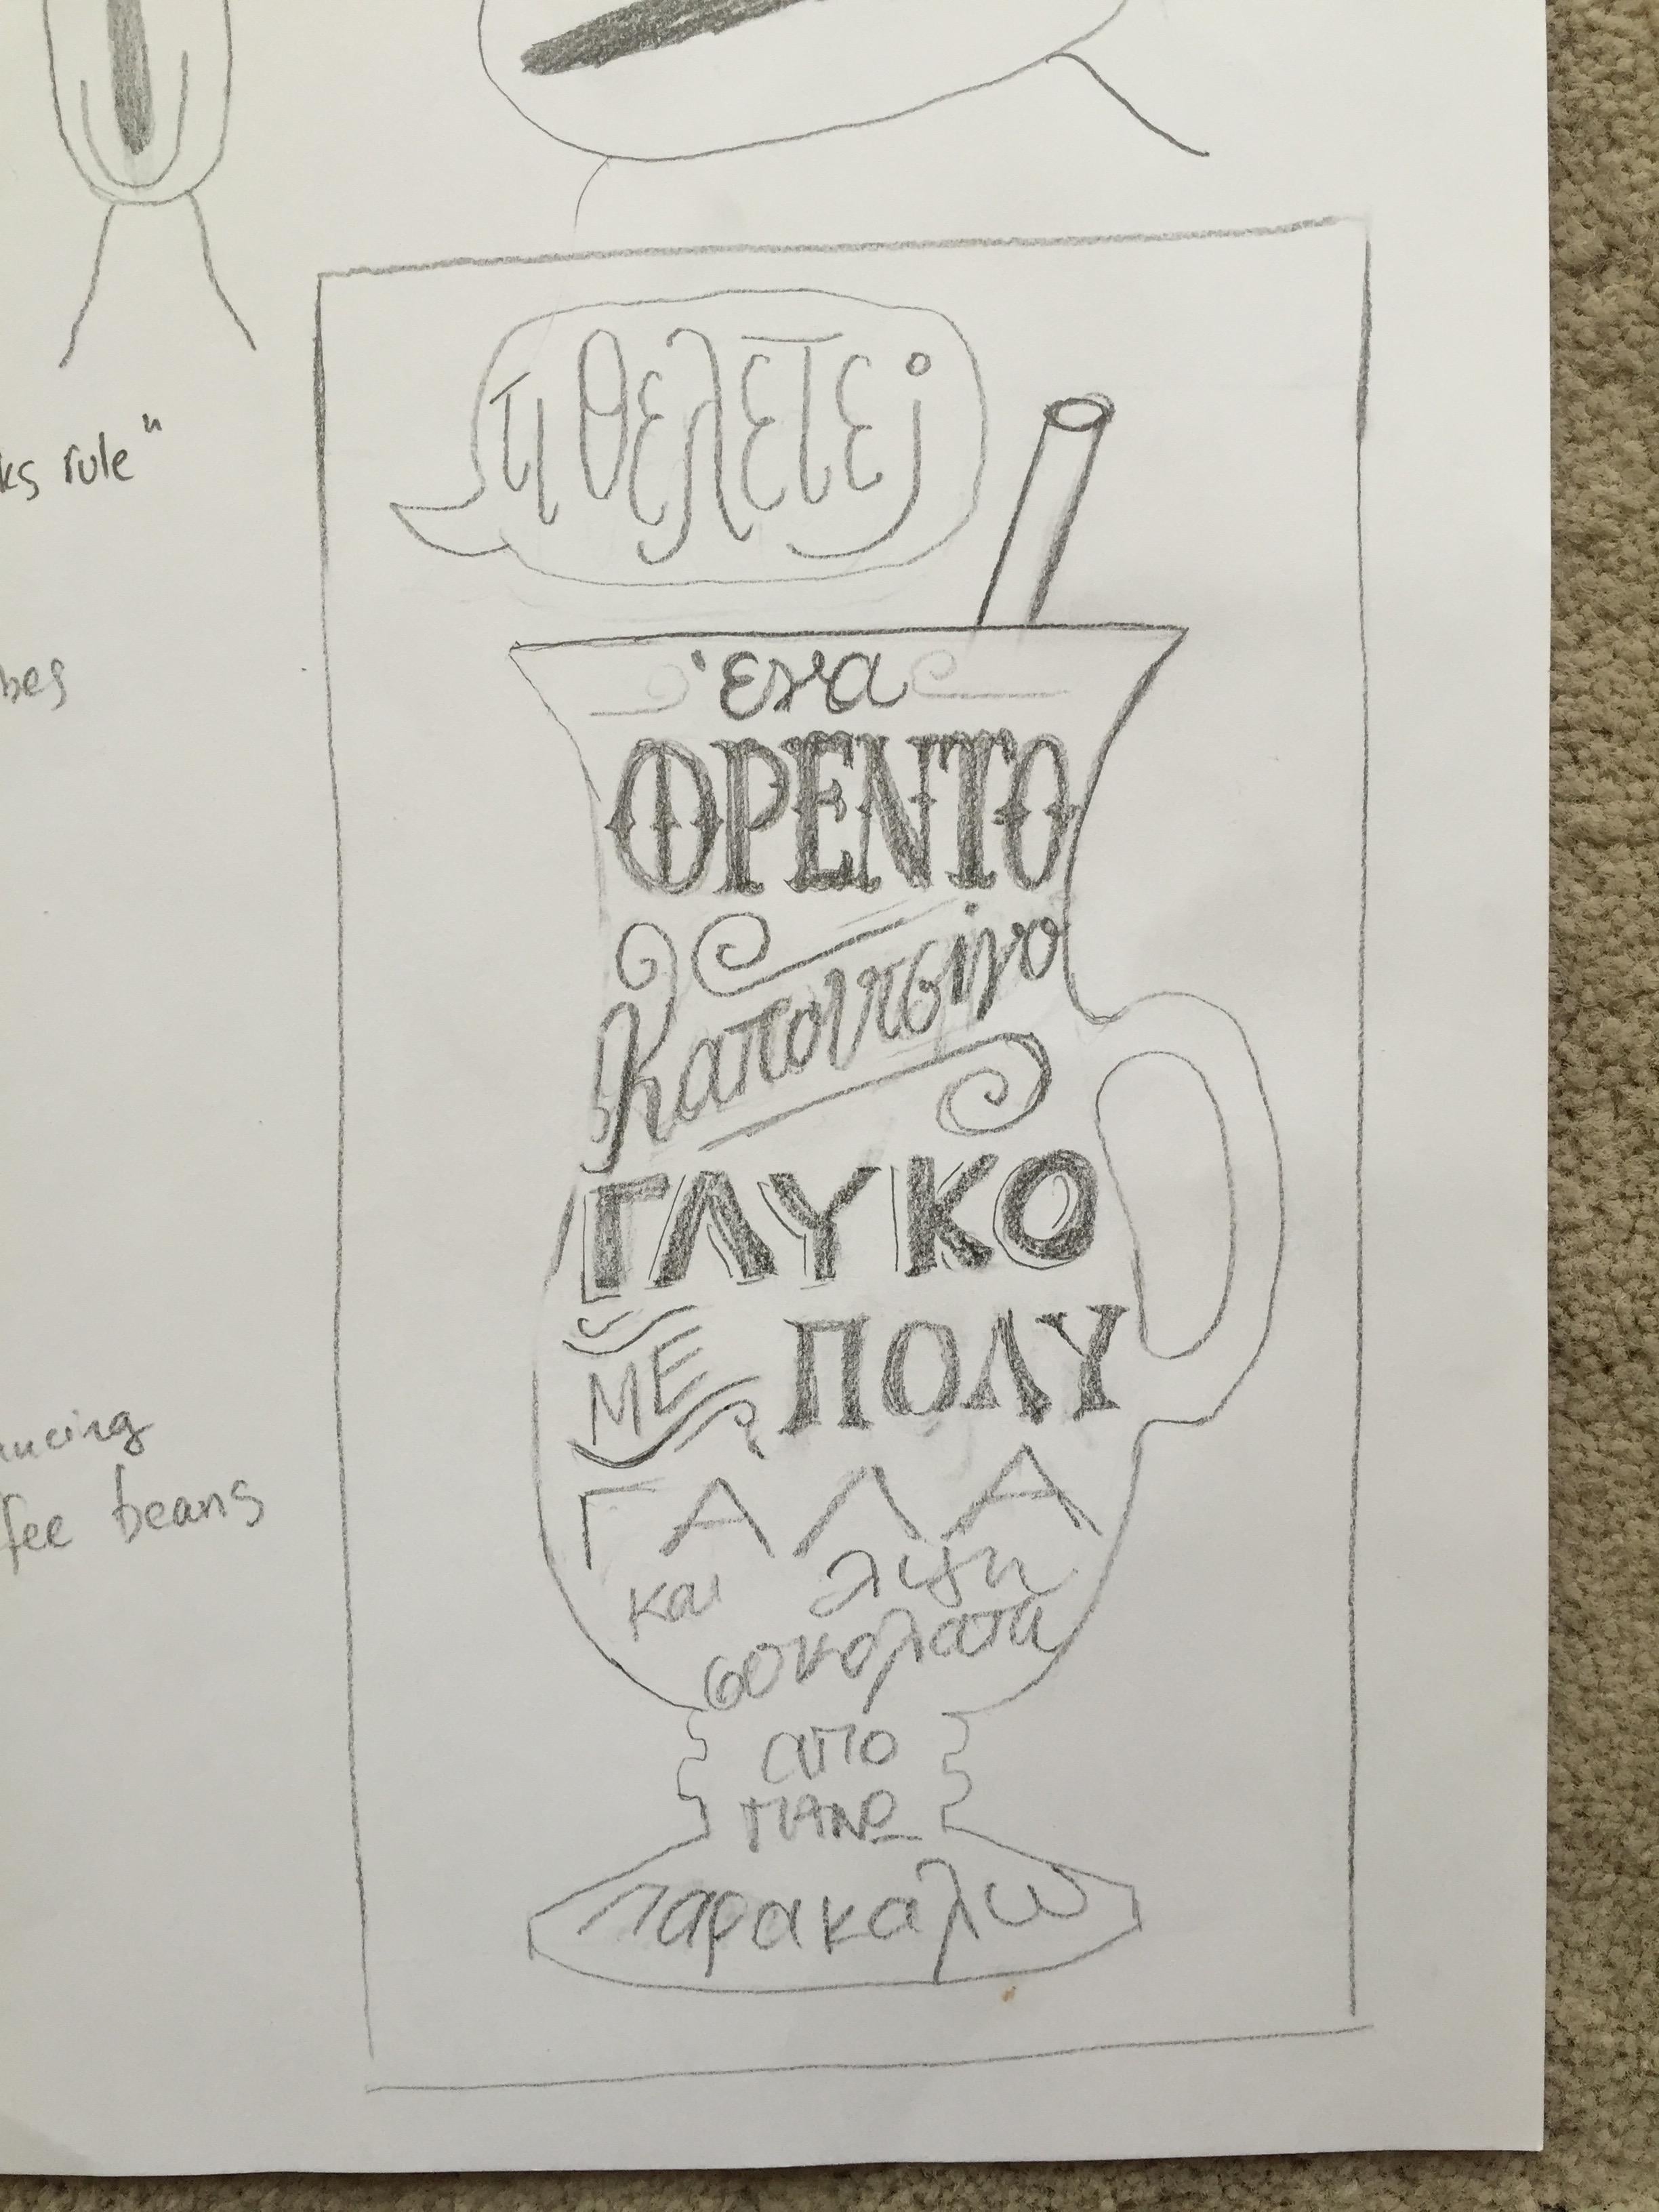 ks rule"
bes
ancing
fee beans
τι θελετε;
'ενα
ΦΡΕΝΤΟ
Καπουτσίνο
ΓΛΥΚΟ
ΜΕ ΠΟΛΥ
ΓΑΛΑ
και λιγη
σοκολατα
απο
ΠΑΝΩ
παρακαλω